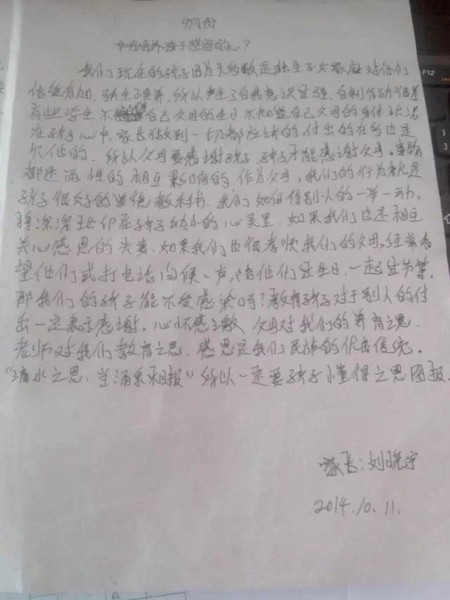 如何培养孩子感恩的心?
我们现在的孩子因为大多数是独生子女家庭对他们
倍爱有加,娇生惯养,所以产生了自我意识强,自制
有些学生不知道自己父母的生日不知道自己父母的
在孩子心中,家长做到一切都应该的付出的在
欠他的。所以父母要感谢孩子,孩子才能感谢父母,事物
都是 相互影响的,作为父母,我们的行为就是
孩子很好的 教科书,我们如何待别人的一举一动,
将深深地印在孩子幼小的心灵里,如果我们也是相互
关心感恩的夫妻,如果我们也很孝顺我们的父母,经常看
望他们或打电话问候一声,陪他们过生日,一起
那我们的孩子能不受感染吗?教育孩子对于别人的付
出一定表示感谢。心怀感 父母对我们的养育之恩,
老师对我们教育之恩,感恩是我们民族的优良传统。
“滴水之恩,当涌泉相报”所以一定要孩子懂得之恩图报。
家长:刘晓宇
2014.10.11.
F12